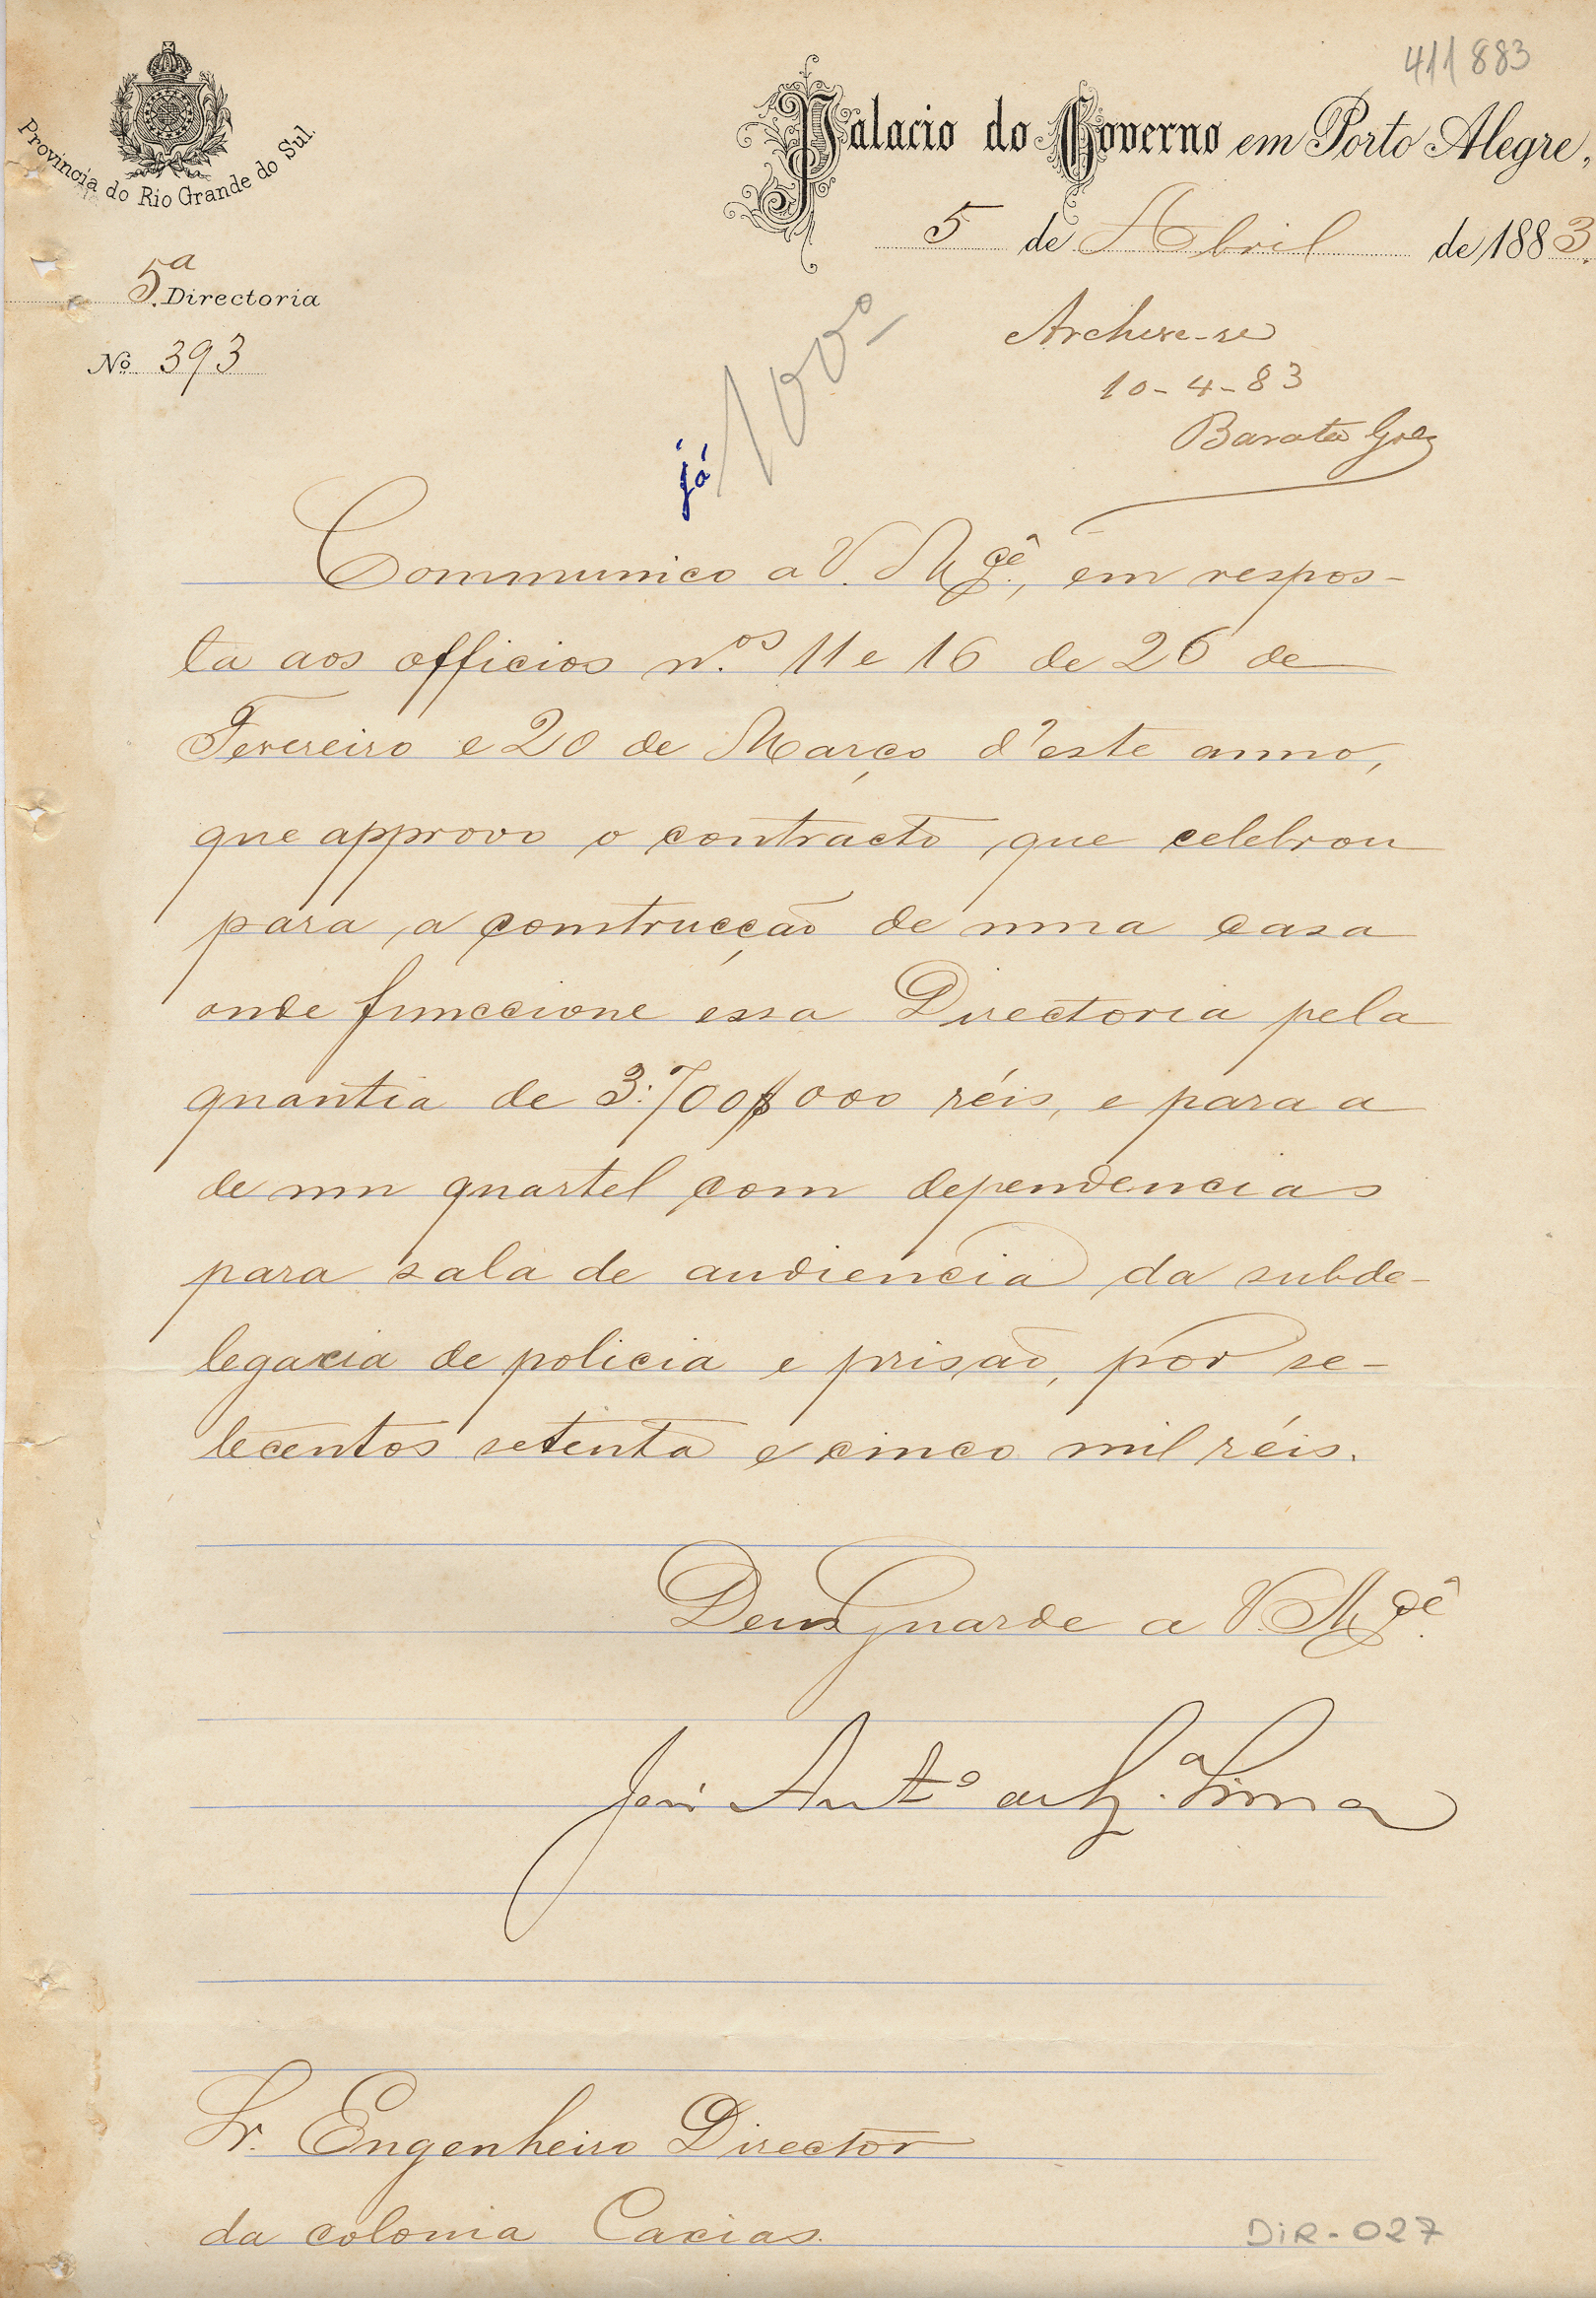 411883
Provincia do Rio Grande do Sul.
Palacio do Governo em Porto Alegre,
5 de Abril de 1883.
5ª Directoria
Nº 393
Archive-se
10-4-83
Barata Góes
já
Communico a V. Mcê., em respos-
ta aos officios n.os 11 e 16 de 26 de
Fevereiro e 20 de Março d'este anno,
que approvo o contracto que celebrou
para a construcção de uma casa
onde funccione essa Directoria pela
quantia de 3:700$000 réis, e para a
de um quartel com dependencias
para sala de audiencia da subde-
legacia de policia e prisão, por se-
tecentos setenta e cinco mil réis.
Deus Guarde a V. Mcê.
José Antº de Lima
Sr. Engenheiro Director
da colonia Caxias.
DIR-027